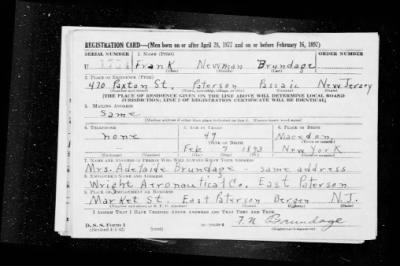 REGISTRATION CARD—(Men born on or after April 28, 1877 and on or before February 16, 1897)
SERIAL NUMBER 1. NAME (Print) ORDER NUMBER
U Frank Newman Brundage
(First) (Middle) (Last)
2. PLACE OF RESIDENCE (Print)
470 Paxton St. Paterson Passaic New Jersey
(Number and street) (Town, township, village, or city) (County) (State)
[THE PLACE OF RESIDENCE GIVEN ON THE LINE ABOVE WILL DETERMINE LOCAL BOARD
JURISDICTION; LINE 2 OF REGISTRATION CERTIFICATE WILL BE IDENTICAL]
3. MAILING ADDRESS
Same
(Mailing address if other than place indicated on line 2. If same insert word same)
4. TELEPHONE 5. AGE IN YEARS 6. PLACE OF BIRTH
none 49 Macedon,
DATE OF BIRTH (Town or county)
Feb 1893 New York
(Exchange) (Number) (Mo.) (Day) (Yr.) (State or country)
7. NAME AND ADDRESS OF PERSON WHO WILL ALWAYS KNOW YOUR ADDRESS
Mrs. Adelaide Brundage - same address
8. EMPLOYER'S NAME AND ADDRESS
Wright Aeronautical Co. East Paterson
9. PLACE OF EMPLOYMENT OR BUSINESS
Market St. East Paterson Bergen N.J.
(Number and street or R. F. D. number) (Town) (County) (State)
I AFFIRM THAT I HAVE VERIFIED ABOVE ANSWERS AND THAT THEY ARE TRUE.
F. N. Brundage
D. S. S. Form 1 (over) (Registrant's signature)